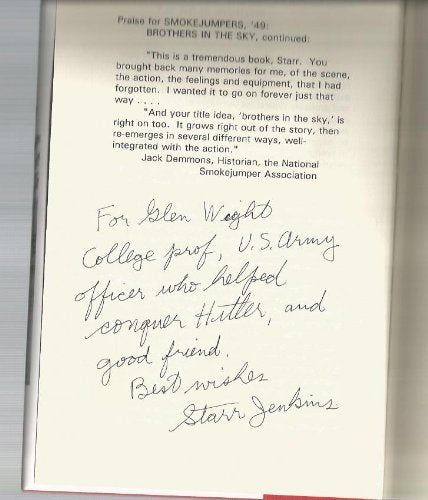 Praise for SMOKEJUMPERS, '49:
BROTHERS IN THE SKY, continued:
"This is a tremendous book, Starr. You
brought back many memories for me, of the scene,
the action, the feelings and equipment, that I had
forgotten. I wanted it to go on forever just that
way . . . .
"And your title idea, 'brothers in the sky,' is
right on too. It grows right out of the story, then
re-emerges in several different ways, well-
integrated with the action."
Jack Demmons, Historian, the National
Smokejumper Association
For Glen Wight
College prof, U.S. Army
officer who helped
conquer Hitler, and
good friend.
Best wishes
Starr Jenkins